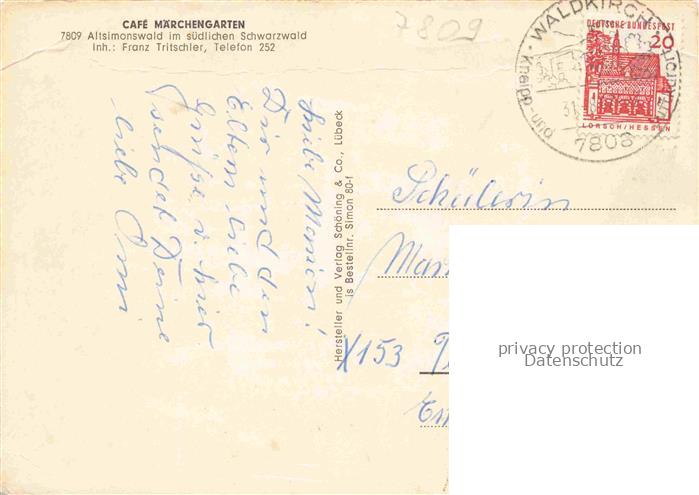 CAFÉ MÄRCHENGARTEN
7809 Altsimonswald im südlichen Schwarzwald
Inh.: Franz Tritschler, Telefon 252
7809
WALDKIRCH
Kneipp- und
31.
7808
DEUTSCHE BUNDESPOST
20
LORSCH/HESSEN
Liebe Marion!
Dir und den
Eltern liebe
Grüße v. hier
sendet Deine
liebe Omi
Hersteller und Verlag Schöning & Co., Lübeck
is Bestellnr. Simon 80-f
Schülerin
Mar
X153
privacy protection
Datenschutz